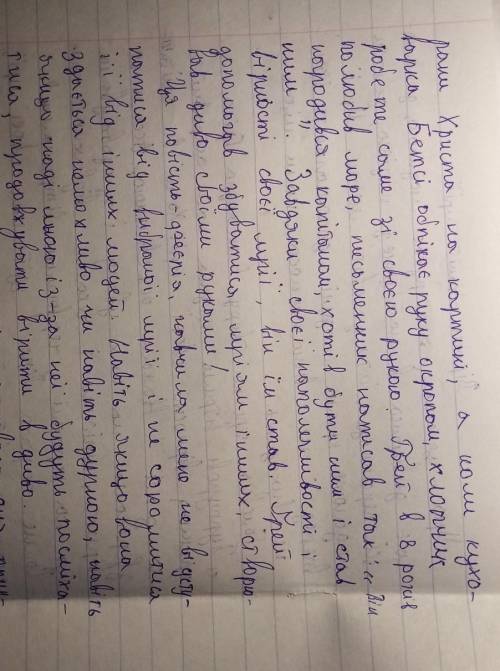 рани Христа на картині, а коли кухо-
варка Бетсі обпікає руку окропом, хлопчик
робе те саме зі своєю рукою. Грей в 8 років
полюбив море, письменник написав так: "Він
народився капітаном, хотів бути ним і став
ним". Завдяки своєї наполегливості і
вірності своєї мрії, він їм став. Грей
допомагав збуватися мріям інших, створю-
вав диво своїми руками!
Ця повість-феєрія, навчила мене не відсту-
патися від вибраної мрії і не соромитися
її від інших людей. Навіть якщо вона
здається неможливою чи навіть дурною, навіть
якщо наді мною із-за неї будуть посміха-
тися, продовжувати вірити в диво.